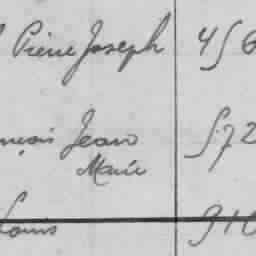 Pierre Joseph 456
nçois Jean 572
Marie
Louis 910